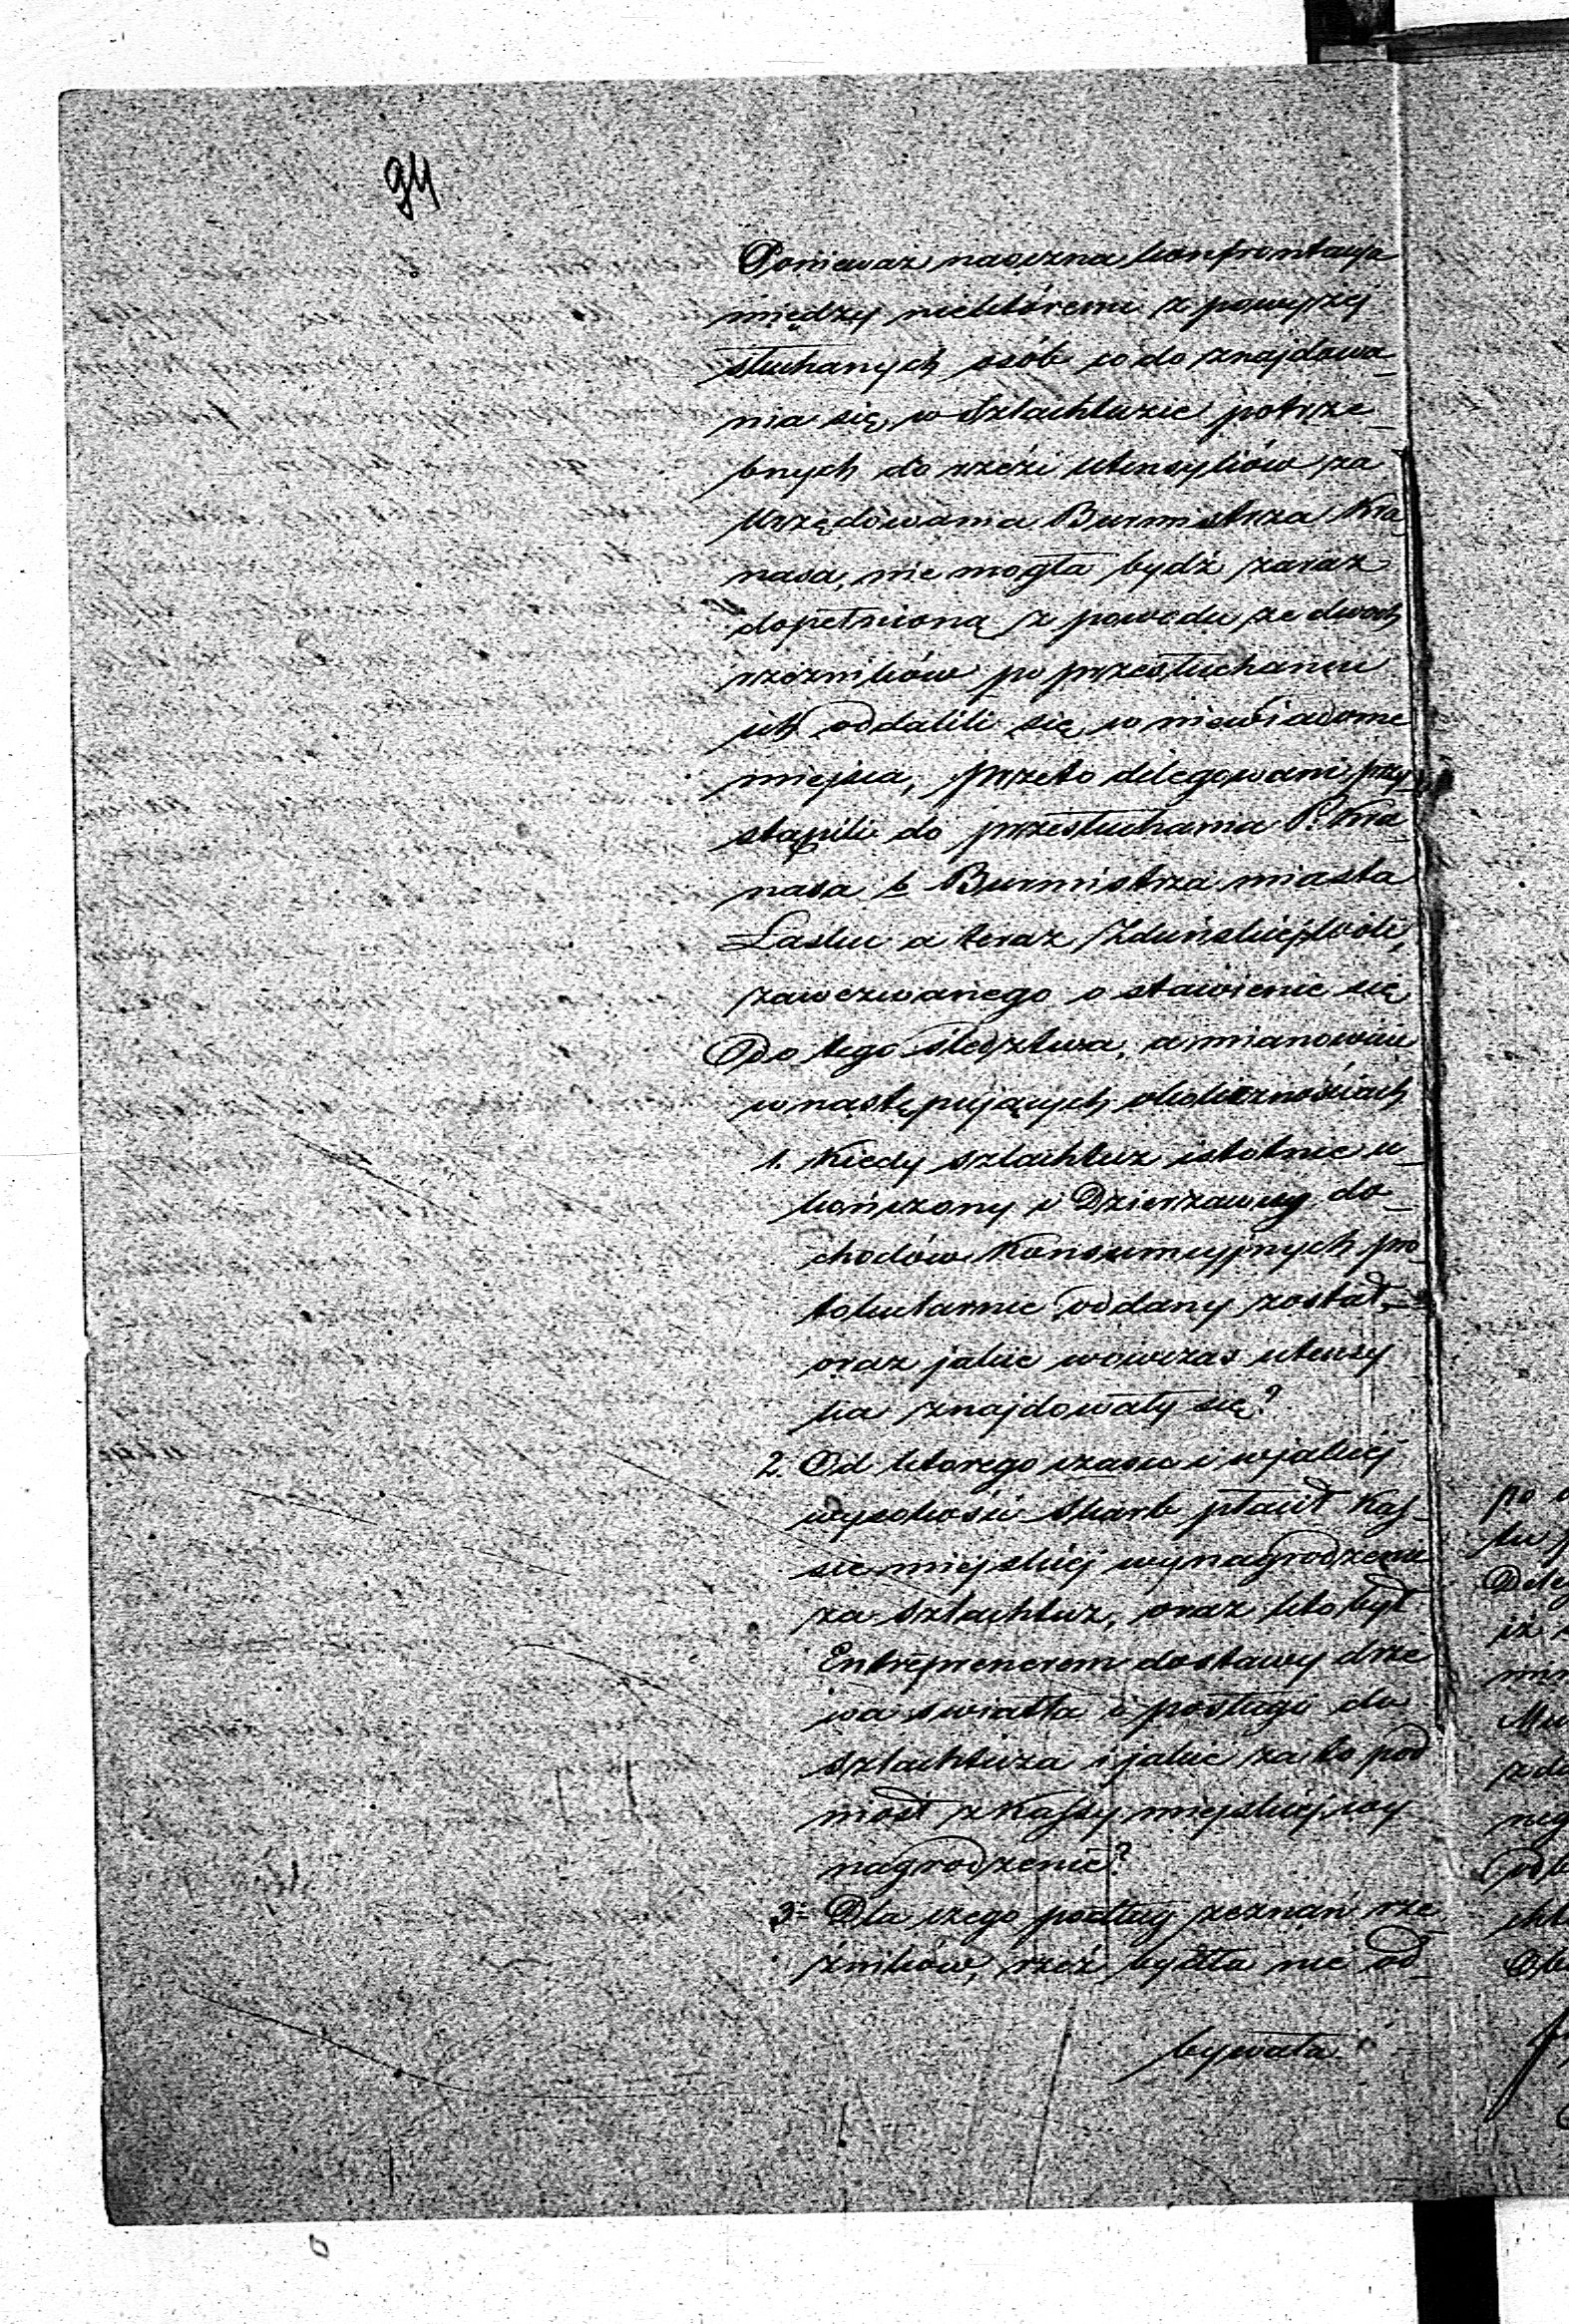 94
Ponieważ naoczna konfrontacya
między niektóremi z powyżej
słuchanych osób co do znajdowa_
nia się, w Szlachtuzie potrze_
bnych do rzezi utensyliów za
Urzędowania Burmistrza Kra
nasa, nie mogła bydź zaraz
dopełnioną z powodu że dwóch
rzezników po przesłuchaniu
ich oddalili się w niewiadome
miejsca, przeto delegowani przy_
stąpili do przesłuchania P. Kra_
nasa b. Burmistrza miasta
Łasku a teraz Zduńskiej Woli,
zawezwanego o stawienie się
do tego śledztwa, a mianowicie
w następujących okolicznościach
1. Kiedy szlachtuz istotnie u_
kończony i Dzierzawcy do_
chodów Konsumcyjnych pro_
tokularnie oddany został,
oraz jakie wówczas utensy
lia znajdowały się?
2. Od którego czasu i w jakiej
wysokości Skarb płacił Kas_
sie miejskiej wynagrodzenie
za szlachtuz, oraz kto był
Entreprenerem dostawy drze
wa światła i posługi do
szlachtuza i jakie za to pod
niósł z Kassy miejskiej wy
nagrodzenie?
3. Dla czego podług zeznań rze_
źników, rzeź bydła nie od_
bywała
po
Deleg
iż
neg